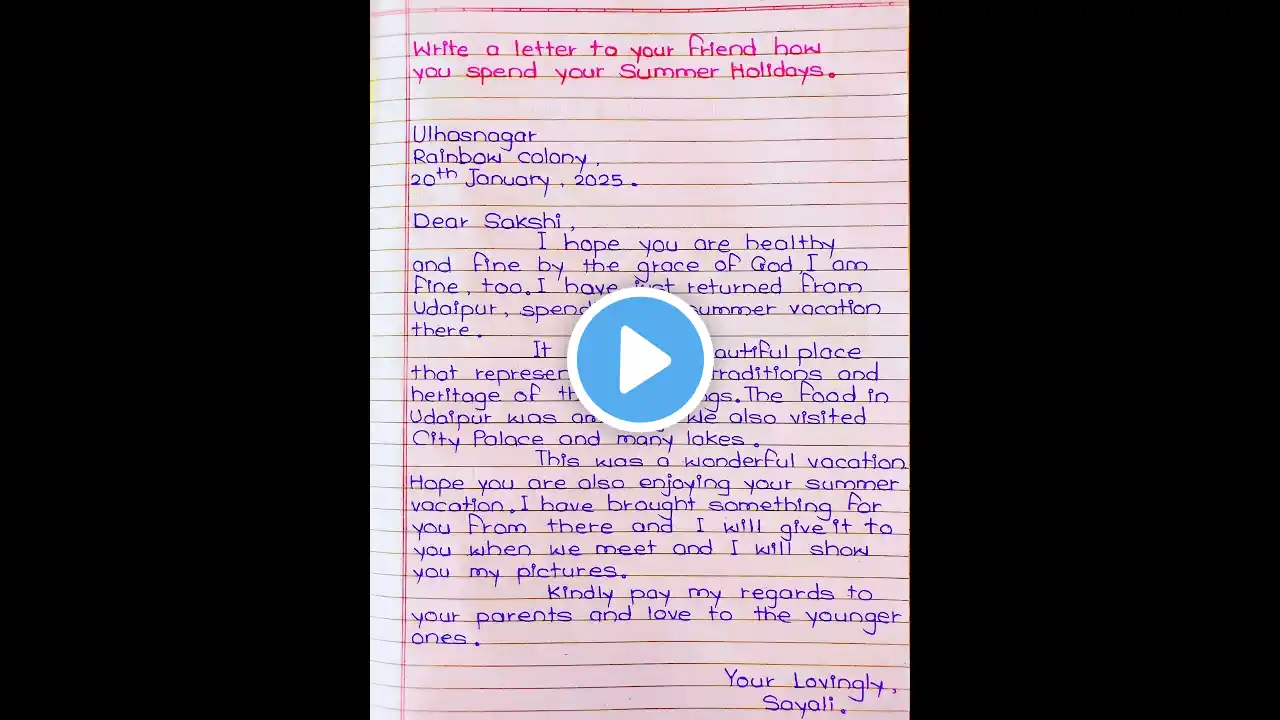 Write a letter to your friend how
you spend your Summer Holidays.
Ulhasnagar
Rainbow colony,
20th January, 2025.
Dear Sakshi,
I hope you are healthy
and fine by the grace of God I am
fine, too. I have just returned from
Udaipur, summer vacation
there.
It place
that traditions and
heritage of The food in
Udaipur was we also visited
City Palace and many lakes.
This was a wonderful vacation
Hope you are also enjoying your summer
vacation. I have brought something for
you from there and I will give it to
you when we meet and I will show
you my pictures.
Kindly pay my regards to
your parents and love to the younger
ones.
Your Lovingly,
Sayali.